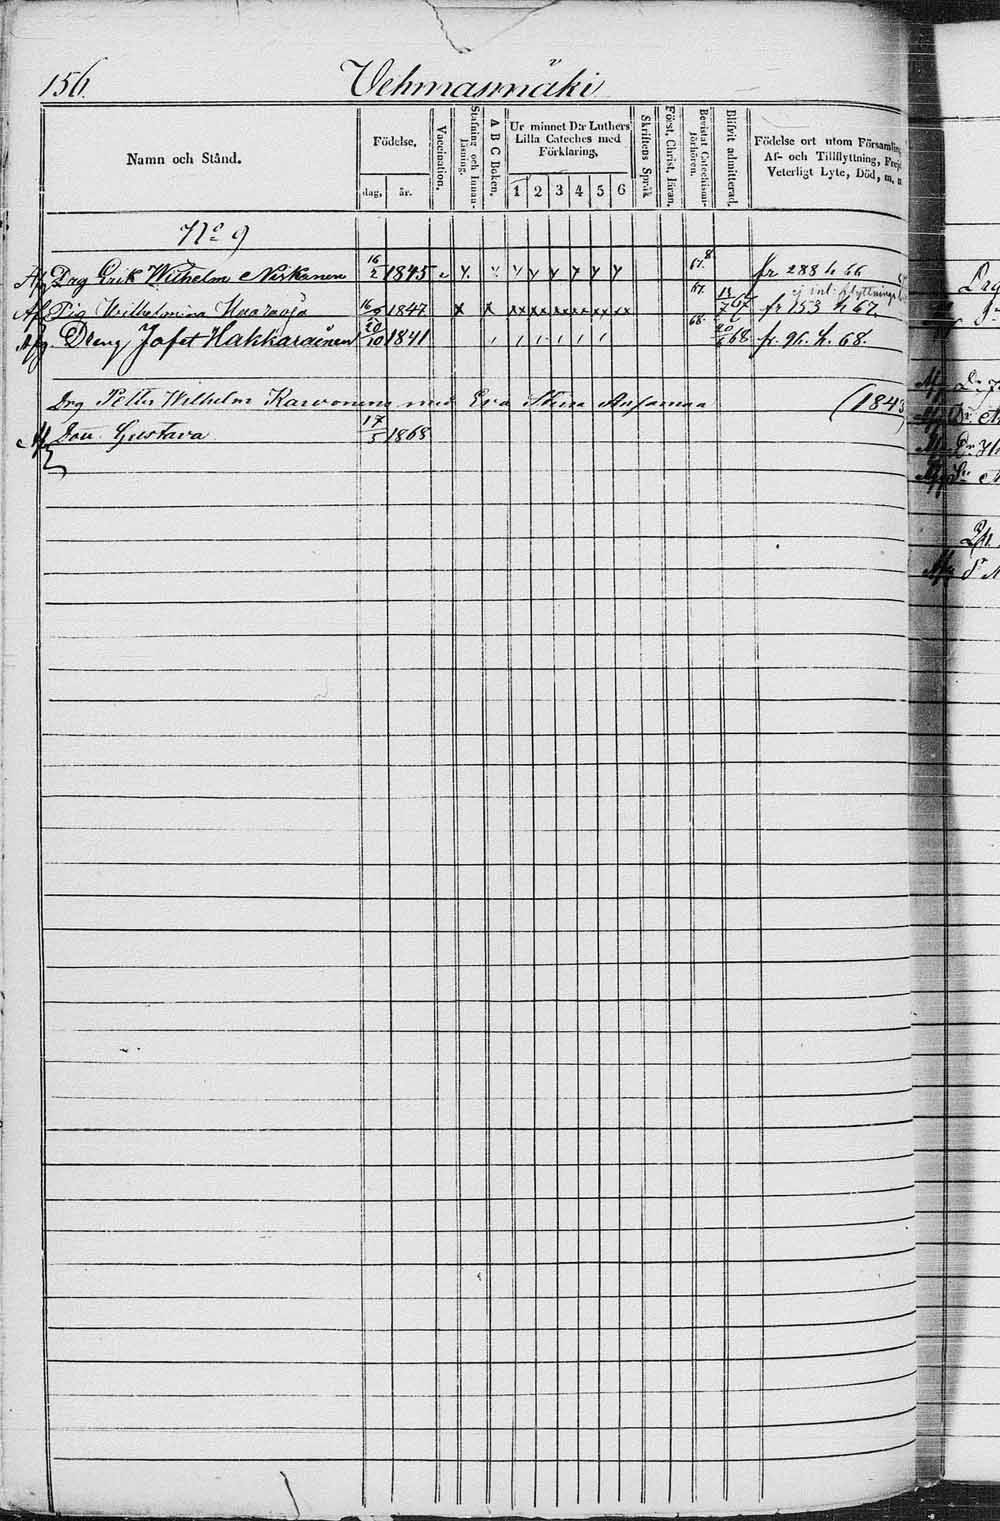 156.
Vehmasmäki
Namn och Stånd.
Födelse,
dag. år.
Vaccination.
Stafning och Innan-läsning.
A B C Boken.
Ur minnet D:r Luthers Lilla Cateches med Förklaring,
1 2 3 4 5 6
Skriftens Språk
Först. Christ. läran.
Bevistat Catechismi-förhören.
Blifvit admitterad.
Födelse ort utom Församling
Af- och Tillflyttning, Frejd
Veterligt Lyte, Död, m. m
No 9
Afg Drag Erik Wilhelm Niskanen 16/2 1845 67. 8. fr 288 h 66
ej inl. flyttnings
Afg Pig Wilhelmina 1847 x x xx xx xx xx xx xx 67. 67 fr 153 h 67.
Afg Dreng Jafet Hakkarainen 20/10 1841 68. 20/6 68. fr. 96. h. 68.
Drg Petter Wilhelm Karvonens med Eva Stina (1843
Afg Don Gustava 17/5 1868